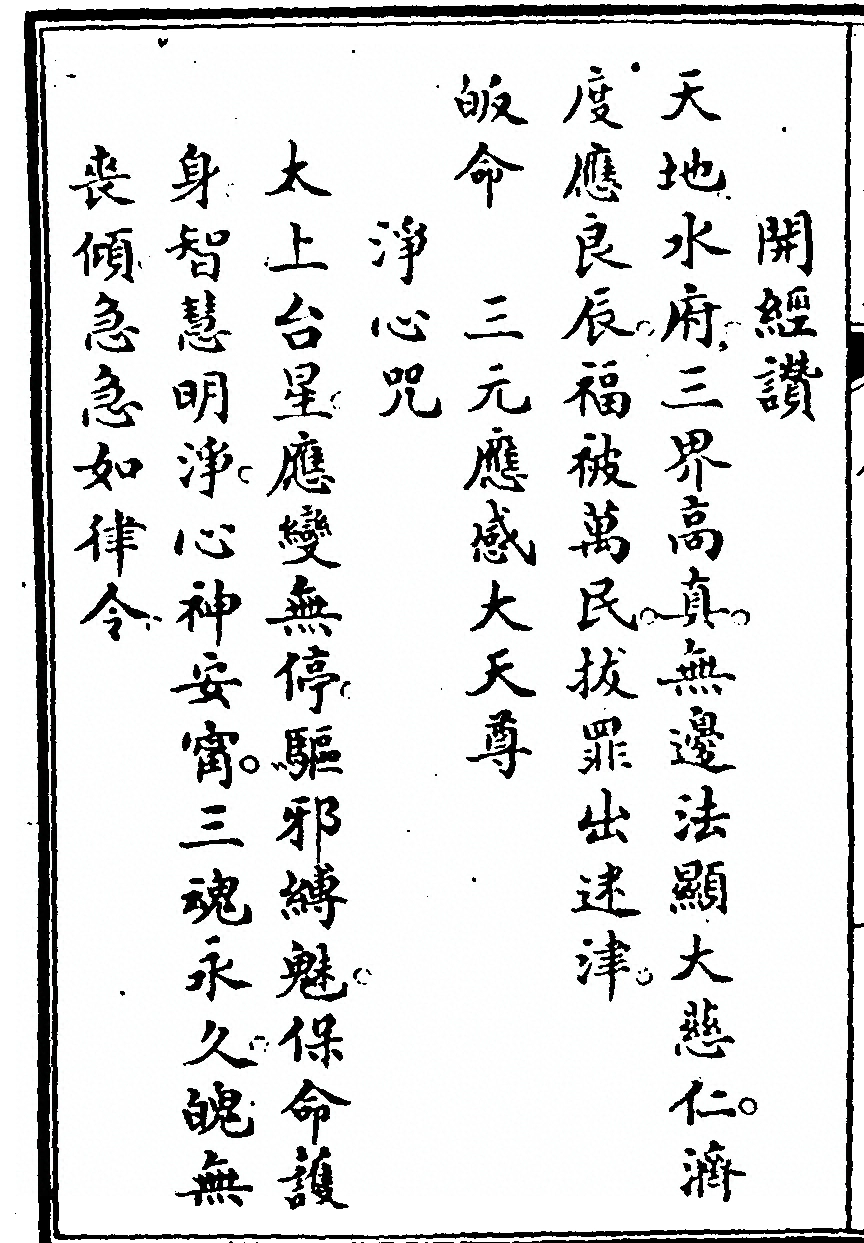 開經讚
天地水府三界高真。無邊法顯大慈仁。濟
度應良辰。福被萬民。拔罪出迷津。
皈命　三元應感大天尊
淨心咒
太上台星。應變無停。驅邪縛魅。保命護
身。智慧明淨。心神安甯。三魂永久。魄無
喪傾。急急如律令。